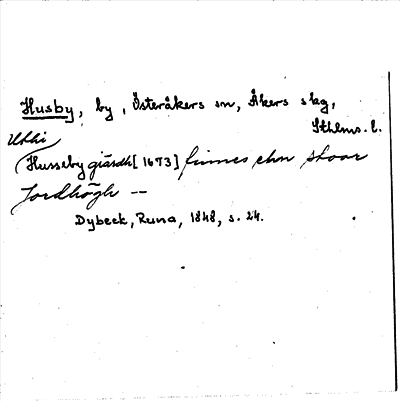 Husby, by, Österåkers sn, Åkers skg,
Sthlms. l.
Uthi
(Husseby giärdh [1673] finnes ehn stoor
Jordhögh --
Dybeck, Runa, 1848, s. 24.